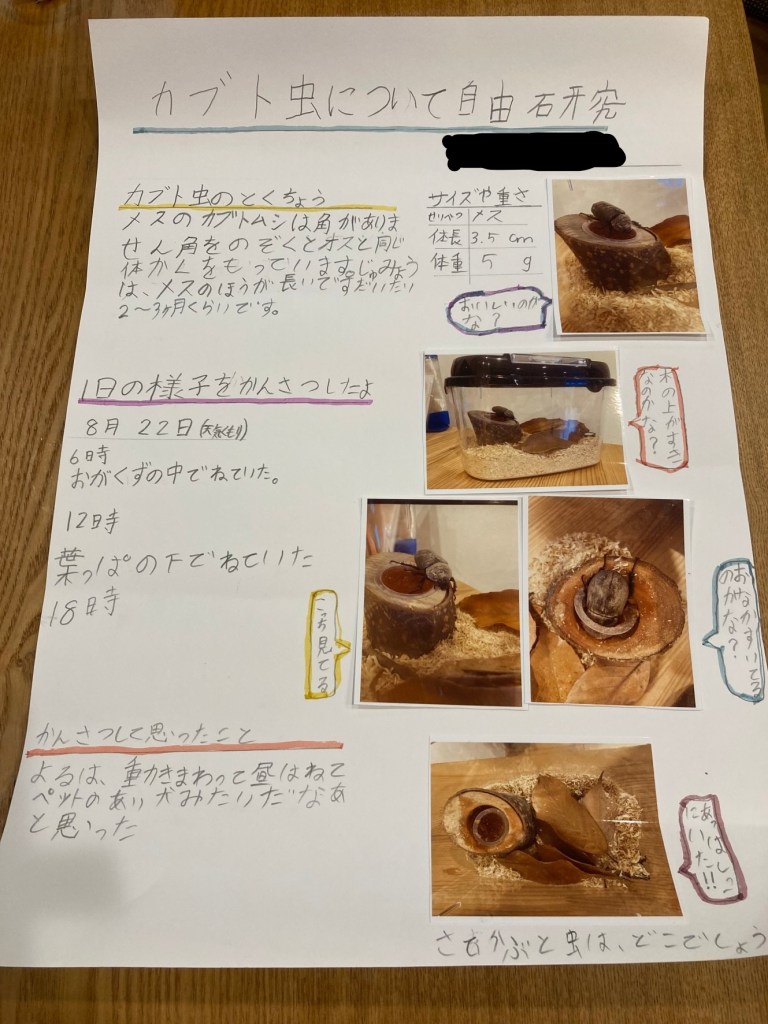 カブト虫について自由研究
カブト虫のとくちょう
メスのカブトムシは角がありま
せん角をのぞくとオスと同じ
体かくをもっています。じゅみょう
は、メスのほうが長いですだいたい
2〜3ヶ月くらいです。
サイズや重さ
せいべつ メス
体長 3.5 cm
体重 5 g
おいしいのか
な?
木の上がすき
なのかな?
1日の様子をかんさつしたよ
8月 22日(天気くもり)
6時
おがくずの中でねていた。
12時
葉っぱの下でねていた
18時
こっち見てる
おなかすいてる
のかな?
かんさつして思ったこと
よるは、動きまわって昼はねて
ペットのあい犬みたいだなあ
と思った
あっはしっこ
にいた!!
さてかぶと虫は、どこでしょう